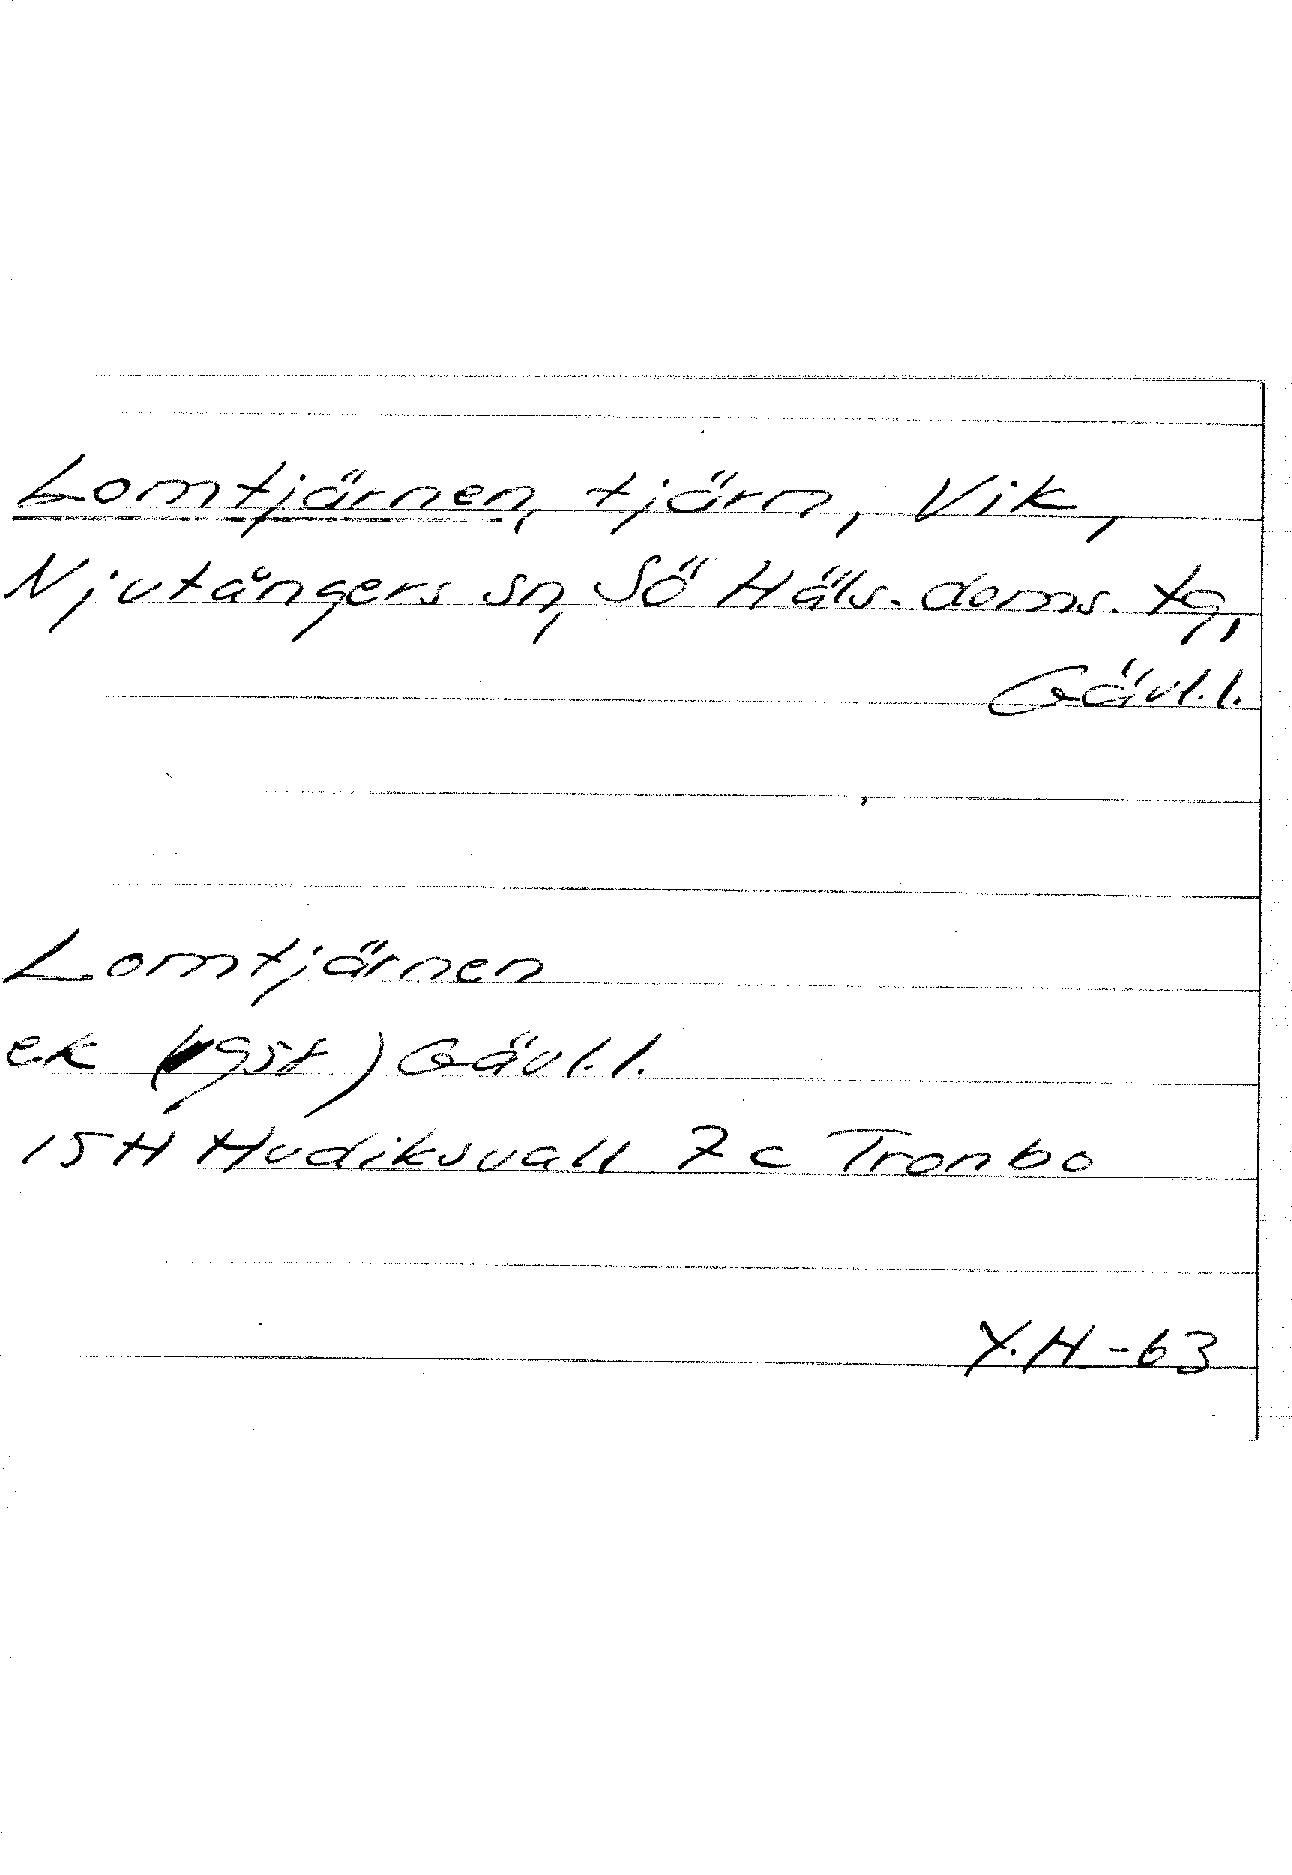 Lomtjärnen, tjärn, Vik,
Njutångers sn, Sö Häls. doms. tg,
Gävl.l.
Lomtjärnen
ek (1958) Gävl.l.
15H Hudiksvall 7c Tronbo
Y.H -63